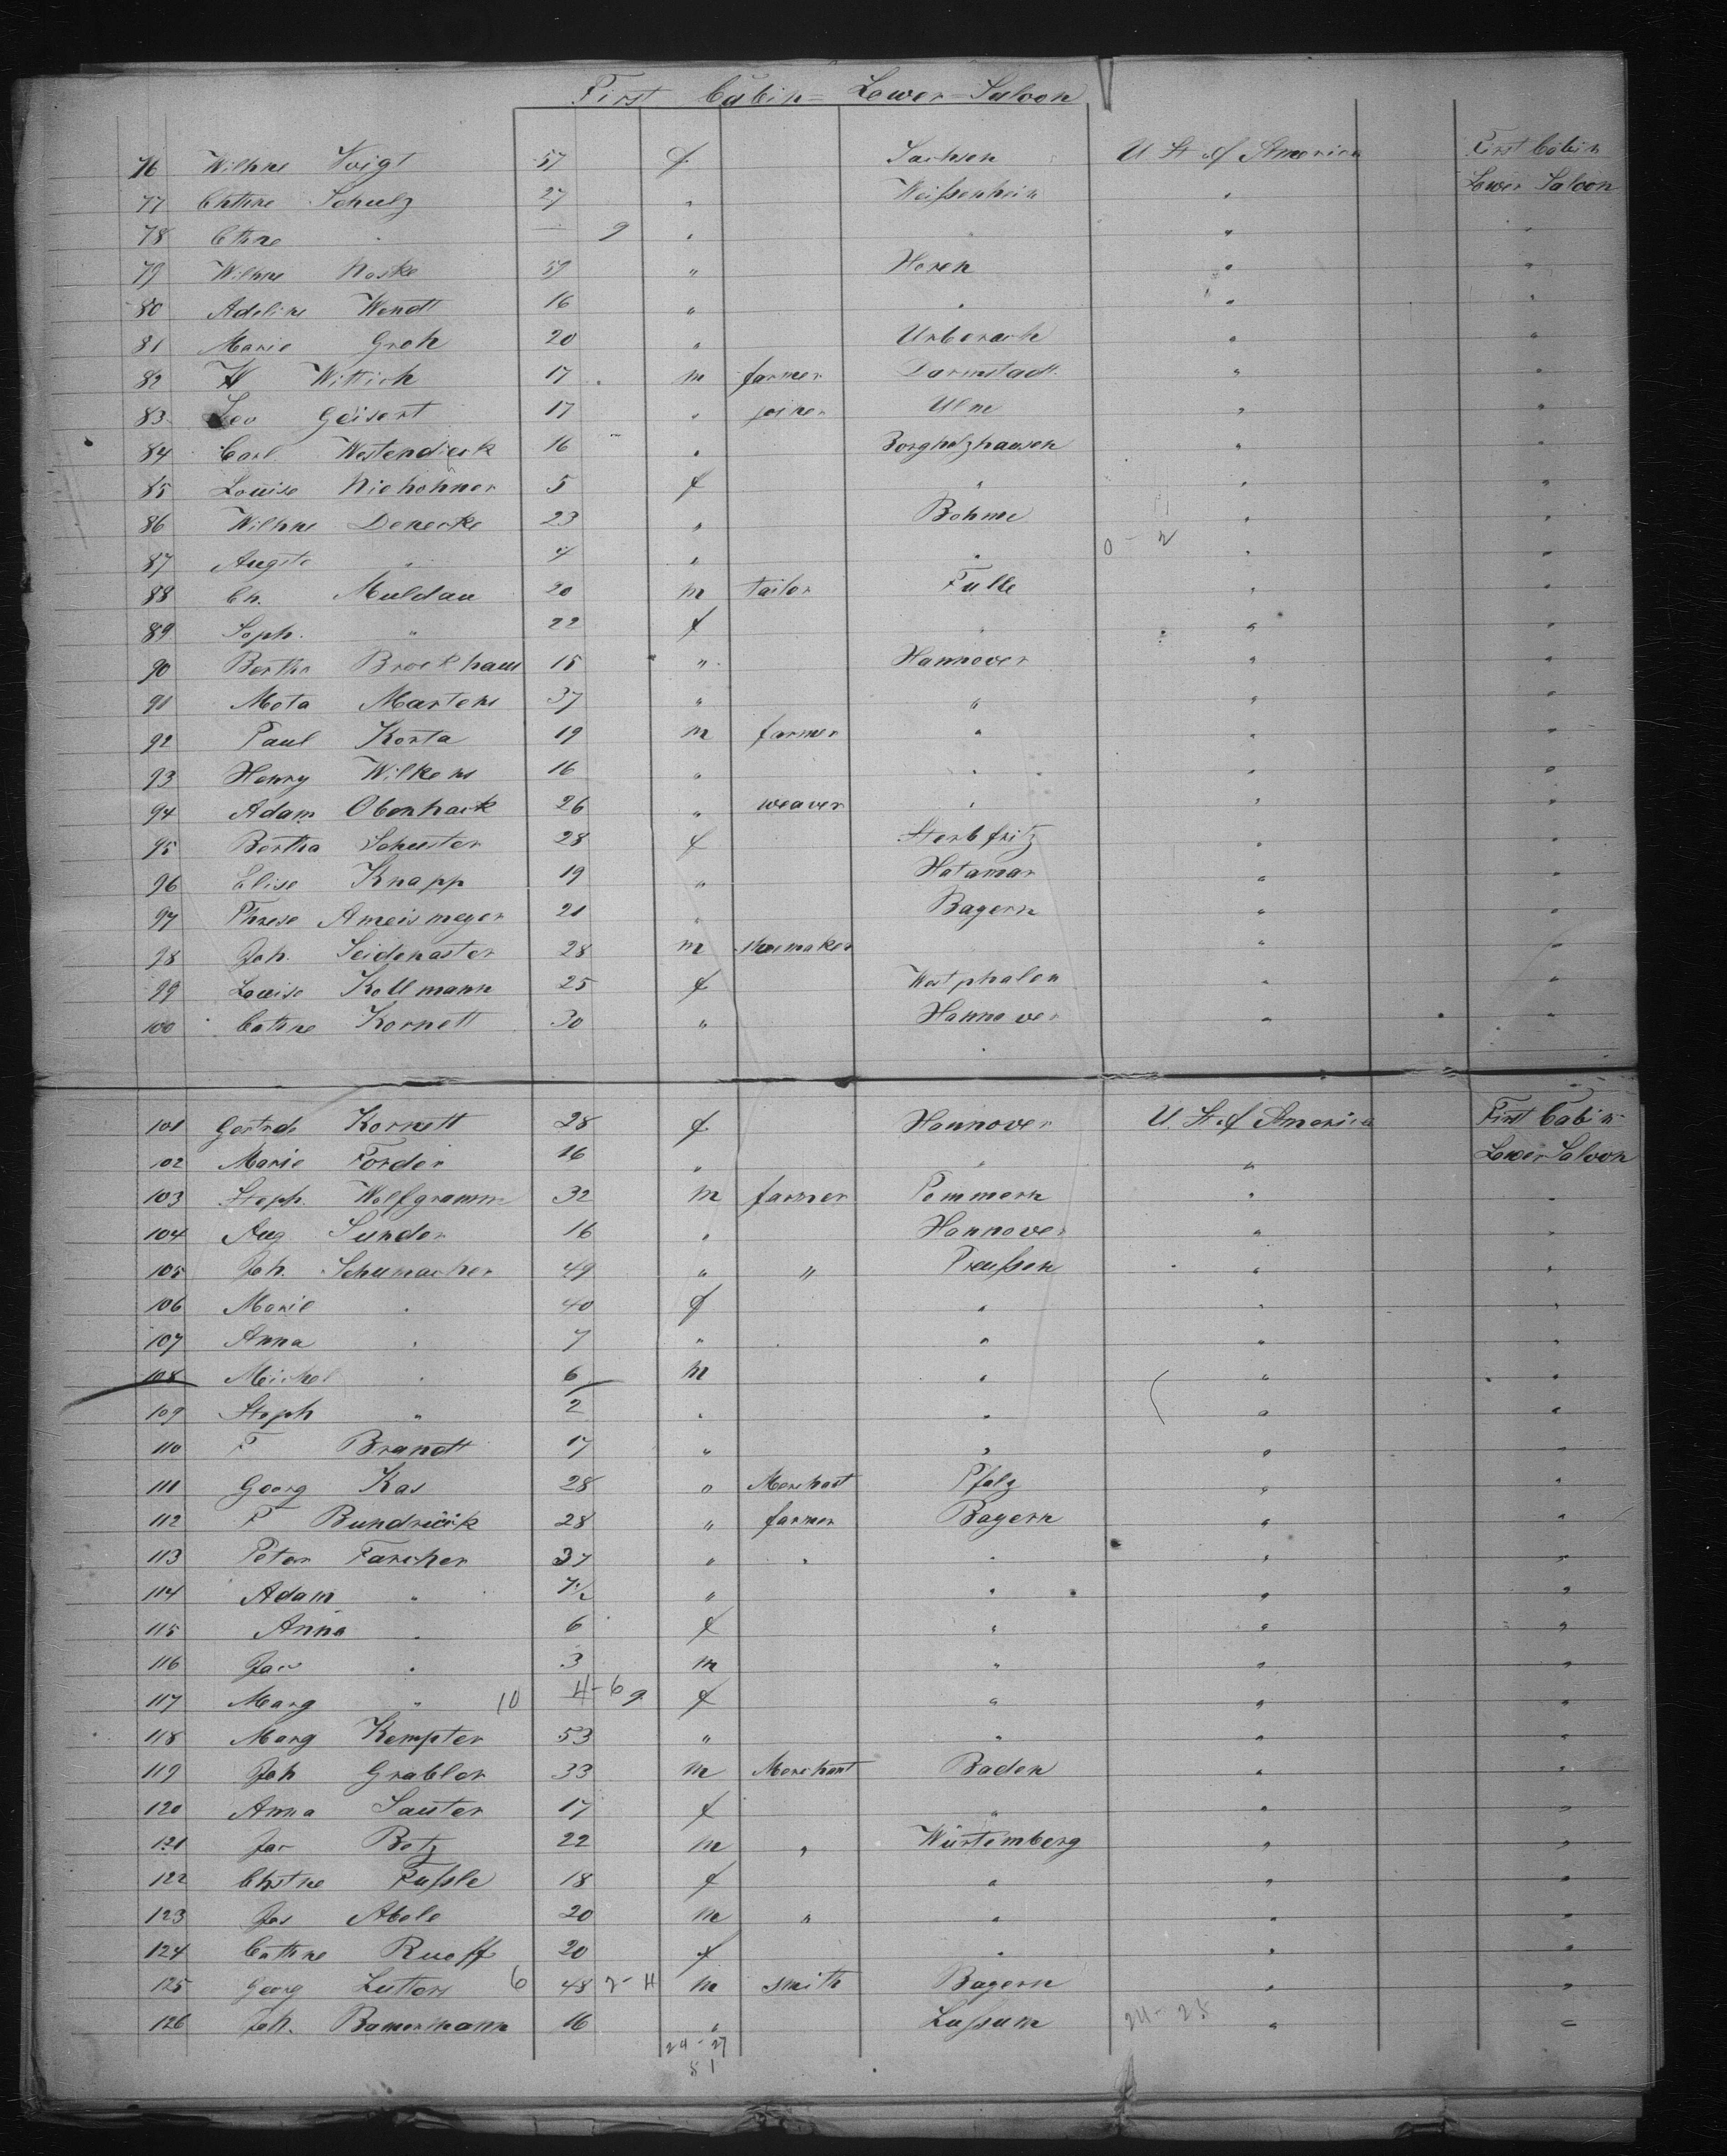 First Cabin = Lower = Saloon
76 Wilhne Voigt 57 f Sachsen U St of America First Cabin
77 Chthne Schulz 27 " Weißenheim " Lower Saloon
78 Cthne " — 9 " " " "
79 Wilhne Noske 59 " Horen " "
80 Adeline Wendt 16 " " " "
81 Marie Groh 20 " Urberach " "
82 W Wittich 17 m farmer Darmstadt " "
83 Leo Geisert 17 " joiner Ulm " "
84 Carl Westendieck 16 " Borgholzhausen " "
85 Louise Niehohner 5 f " " "
86 Wilhne Denecke 23 " Bohme " "
87 Augste " 4 " " 0 - 2 " "
88 Ch. Muldau 20 m tailor Fulle " "
89 Soph. " 22 f " " "
90 Bertha Brockhaus 15 " Hannover " "
91 Meta Martens 37 " " " "
92 Paul Korta 19 m farmer " " "
93 Henry Wilkens 16 " " " "
94 Adam Obenhack 26 " weaver " " "
95 Bertha Schuster 28 f Sterbfritz " "
96 Elise Knapp 19 " Hatamar " "
97 Threse Ameismeyer 21 " Bayern " "
98 Joh. Seidenaster 28 m shoemaker " " "
99 Louise Kollmann 25 f Westphalen " "
100 Cathne Kornett 30 " Hannover " "
101 Gertrde Kornett 28 f Hannover U. St of America First Cabin
102 Marie Forder 16 " " " Lower Saloon
103 Steph. Wolfgramm 32 m farmer Pommern " "
104 Aug Sunder 16 " Hannover " "
105 Joh. Schumacher 49 " " Preußen " "
106 Marie " 40 f " " "
107 Anna " 7 " " " "
108 Michel " 6 m " " "
109 Steph " 2 " " " "
110 F Brandt 17 " " " "
111 Georg Kas 28 " Merchant Pfalz " "
112 F Bundrück 28 " farmer Bayern " "
113 Peter Farcher 37 " " " " "
114 Adam " 7½ " " " "
115 Anna " 6 f " " "
116 Jac " 3 m " " "
117 Marg " 10 4-6 9 f " " "
118 Marg Kempter 53 " " " "
119 Joh Grabler 33 m Merchant Baden " "
120 Anna Sauter 17 f " " "
121 Jac Betz 22 m " Würtemberg " "
122 Chstne Fußle 18 f " " "
123 Jos Abele 20 m " " " "
124 Cathne Rueff 20 f " " "
125 Georg Lutters 6 48 2-4 m smith Bayern " "
126 Joh. Bamermann 16 " Lußum 24-28 " "
24-27
51